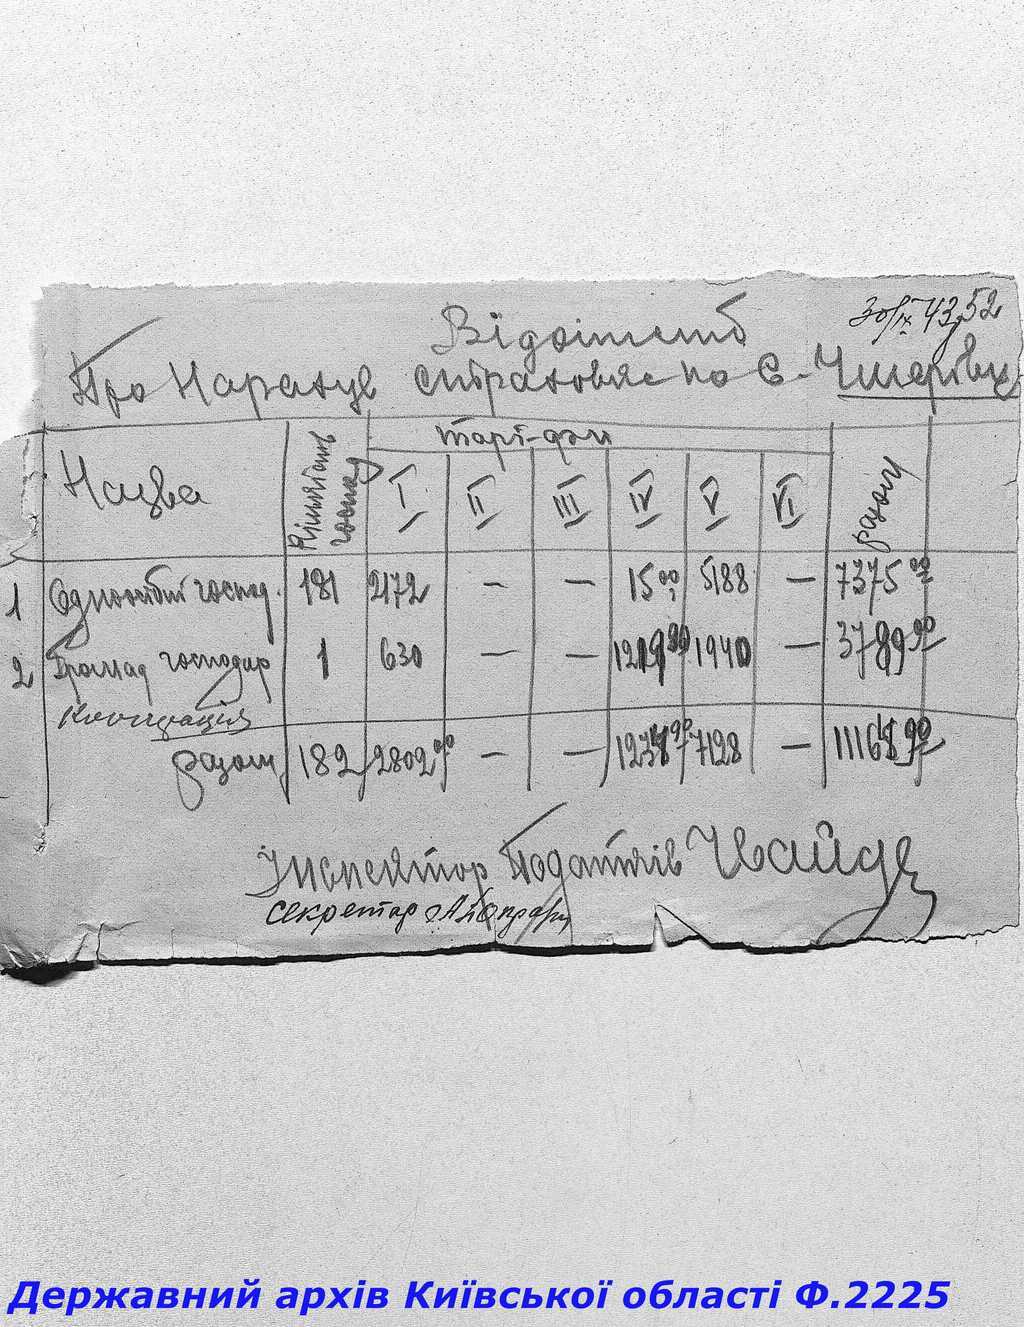 30/IX 43 52
Відомість
Про Нарахув страховок по с.
Назва
Кількість господ
тарі-фи
I II III IV V VI
разом
1 Одноосібні господ. 181 2172 — — 15 00 5188 — 7375 00
2 Громад господар 1 630 — — 1219 90 1940 — 3789 90
разом 182 2802 00 — — 1234 90 7128 — 11164 90
Інспектор Податків
секретар
Державний архів Київської області Ф.2225